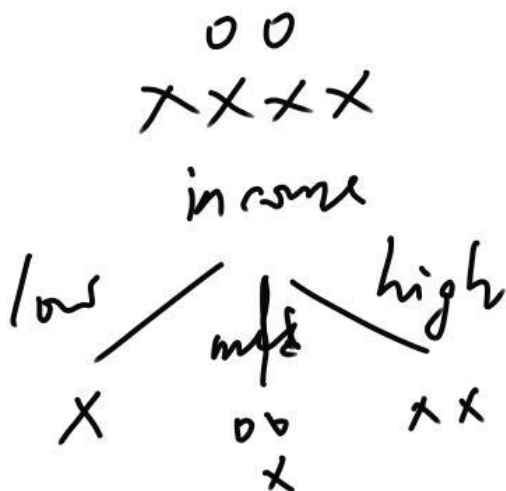 O O
X X X X
income
low med high
X O O X X
X